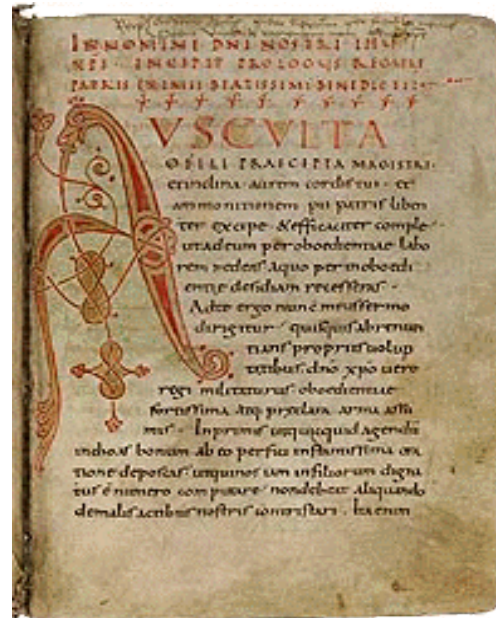 IN NOMINE DNI NOSTRI IHU
XPI INCIPIT PROLOGUS REGULE
PATRIS EXIMII BEATISSIMI BENEDICTI
AUSCULTA
O FILI PRAECEPTA MAGISTRI·
et inclina aurem cordis tui · et
ammonitionem pii patris liben
ter excipe · & efficaciter comple
ut ad eum per oboedientiae labo
rem redeas · a quo per inoboedi
entie desidiam recesseras ·
Ad te ergo nunc meus sermo
dirigitur · quisquis abrenun
tians propriis uolup
tatibus · dno xpo uero
regi militaturus · oboedientiae
fortissima atq; praeclara arma assu
mis · Inprimis ut quicquid agendu
inchoas bonum ab eo perfici instantissima ora
tione deposcas · ut qui nos iam in filiorum digna
tus ē numero computare · non debeat aliquando
de malis actibus nostris contristari · Ita enim